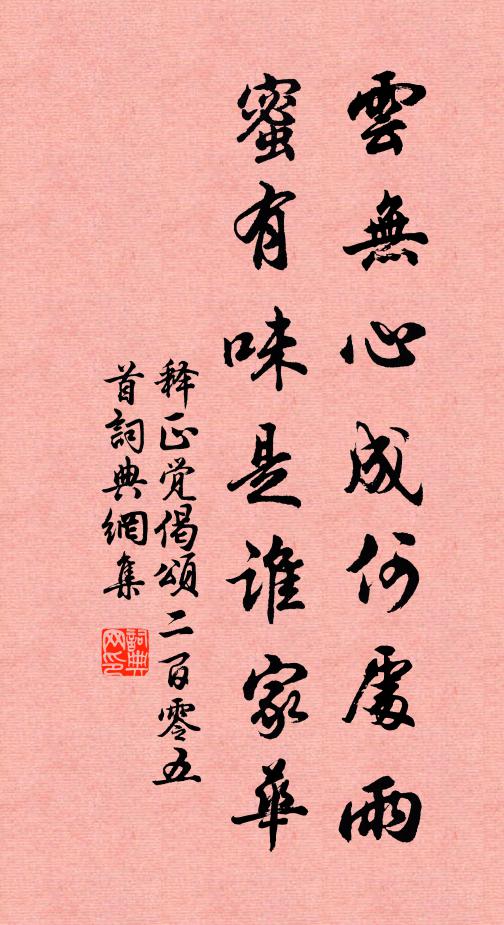 雲無心成何處雨
蜜有味是誰家華
释正觉偈頌二百零五
首詞典網集
詞典
网印